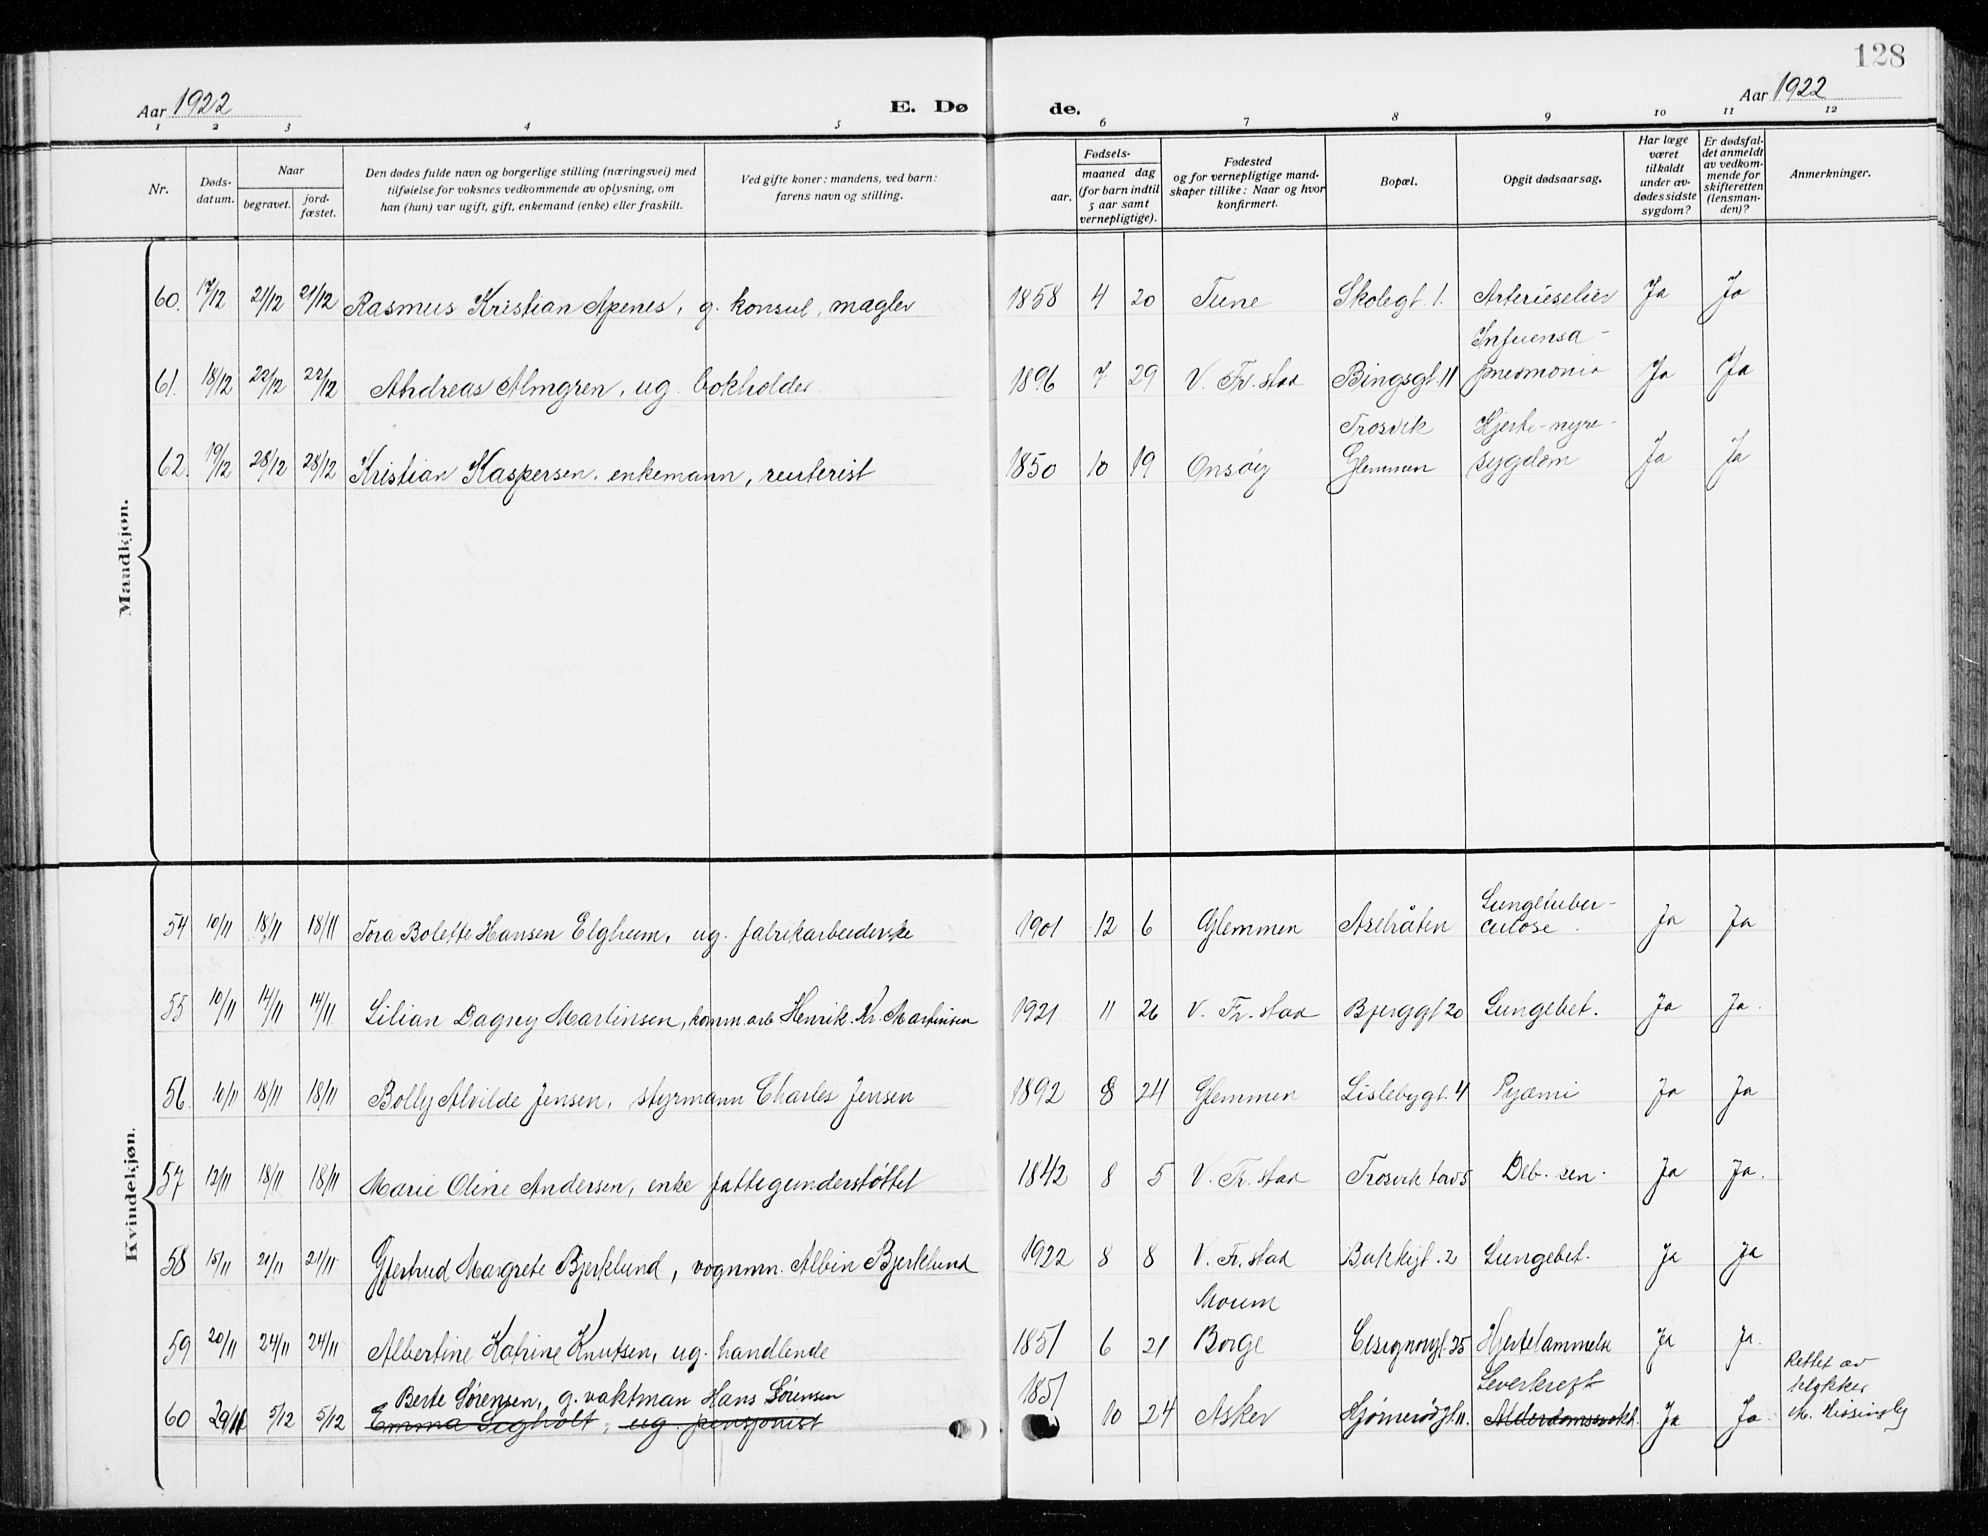 128
Aar 1922 E. Dø de. Aar 1922
1 2 3 4 5 6 7 8 9 10 11 12
Nr. Døds-datum. Naar begravet. jord-fæstet. Den dødes fulde navn og borgerlige stilling (næringsvei) med tilføielse for voksnes vedkommende av oplysning, om han (hun) var ugift, gift, enkemand (enke) eller fraskilt. Ved gifte koner: mandens, ved barn: farens navn og stilling. Fødsels- aar. maaned dag (for barn indtil 5 aar samt vernepligtige). Fødested og for vernepligtige mand-skaper tillike: Naar og hvor konfirmert. Bopæl. Opgit dødsaarsag. Har læge været tilkaldt under av-dødes sidste sygdom? Er dødsfal-det anmeldt av vedkom-mende for skifteretten (lensman-den)? Anmerkninger.
Mandkjøn.
60. 17/12 21/12 21/12 Rasmus Kristian Apenes, g. konsul, magler 1858 4 20 Tune Skolegt. 1. Ja Ja
61. 18/12 22/12 22/12 Andreas Almgren, ug. bokholder 1896 7 29 V. Fr.stad Bingsgt. 11 Infuensa- pneomonia Ja Ja
62. 19/12 28/12 28/12 Kristian Kaspersen, enkemann, renterist 1850 10 19 Onsøy Trosvik Glemmen Hjerte-nyre-sygdom Ja Ja
Kvindekjøn.
54 10/11 18/11 18/11 Tora Bolette Hansen Elgheim, ug. fabrikarbeiderske 1901 12 6 Glemmen Aselråten Lungetuber-culose. Ja Ja
55 10/11 14/11 14/11 Lilian Dagny Martinsen, komm.arb Henrik Kr. Martinsen 1921 11 26 V. Fr.stad Bjerggt 20 Lungebet. Ja Ja.
56 10/11 18/11 18/11 Bolly Alvilde Jensen, styrmann Charles Jensen 1892 8 24 Glemmen Lislebygt. 4 Pyæmi Ja Ja
57 12/11 18/11 18/11 Marie Oline Andersen, enke fattigunderstøttet 1842 8 5 V. Fr.stad Trosvik torv 5 Deb. sen. Ja Ja.
58 15/11 21/11 21/11 Gjertrud Margrete Bjerklund, vognmn. Albin Bjerklund 1922 8 8 V. Fr.stad Bakkegt. 2 Lungebet. Ja Ja
59 20/11 24/11 24/11 Albertine Katrine Knutsen, ug. handlende 1851 6 21 Moum Borge 25 Hjertelammelse Ja Ja.
Berte Sørensen, g. vaktman Hans Sørensen 1851 Leverkreft
60 29/11 5/12 5/12 Emma Segholt, ug pensjonist 10 24 Asker Ja Ja. Rettet av klokker